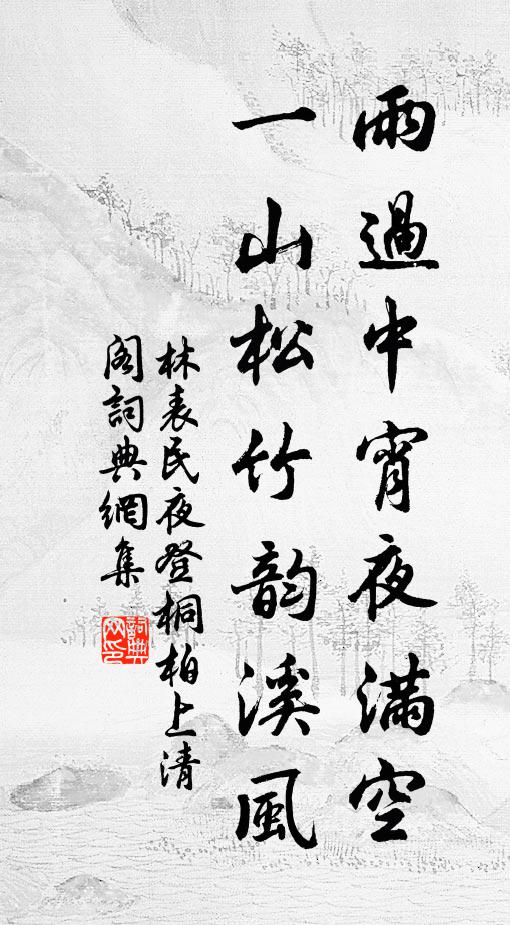 雨過中宵夜滿空
一山松竹韵溪風
林表民夜登桐柏上清
閣詞典網集
詞典
网印